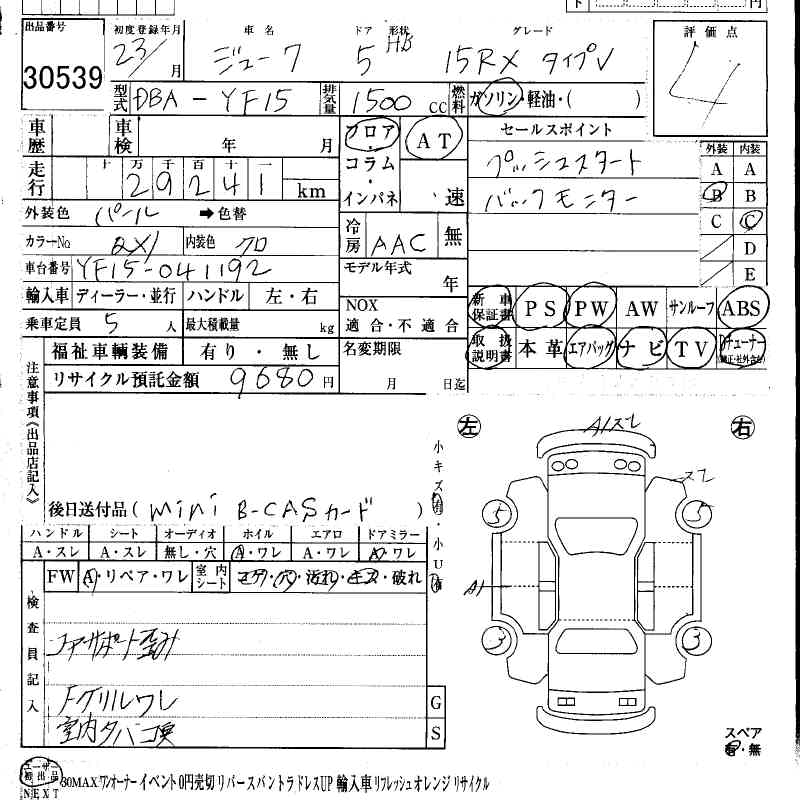 出品番号 初度登録年月 車名 ドア 形状 グレード 評価点
30539 23/ 月 ジューク 5 HB 15RX タイプV 4
型式 DBA-YF15 排気量 1500 CC 燃料 ガソリン・軽油・( )
車歴 車検 年 月 フロア・コラム・インパネ AT 速 セールスポイント
プッシュスタート
バックモニター
外装 内装
A A
B B
C C
D
E
走行 十 万 千 百 十 一
29241 km
外装色 パール ➡色替
冷房 AAC 無
カラーNo QX1 内装色 クロ
車台番号 YF15-041192 モデル年式 年
輸入車 ディーラー・並行 ハンドル 左・右 NOX 適合・不適合
新車保証書 PS PW AW サンルーフ ABS
乗車定員 5 人 最大積載量 kg
取扱説明書 本革 エアバッグ ナビ TV
福祉車輌装備 有り・無し 名変期限 月 日迄
リサイクル預託金額 9680 円
注意事項《出品店記入》
後日送付品( mini B-CASカード )
小キズ有・小U有
ハンドル シート オーディオ ホイル エアロ ドアミラー
A・スレ A・スレ 無し・穴 A・ワレ A・ワレ A・ワレ
FW A・リペア・ワレ 室内シート コゲ・穴・汚れ・キズ・破れ
検査員記入
コアサポート歪み
Fグリルワレ
室内タバコ臭
G
S
左 右
A1スレ
スレ
5 5
A1
3 3
スペア
有・無
ユーザー初出品
NEXT 30MAX ワンオーナー イベント 0円売切 リバース バントラ ドレスUP 輸入車 リフレッシュ オレンジ リサイクル